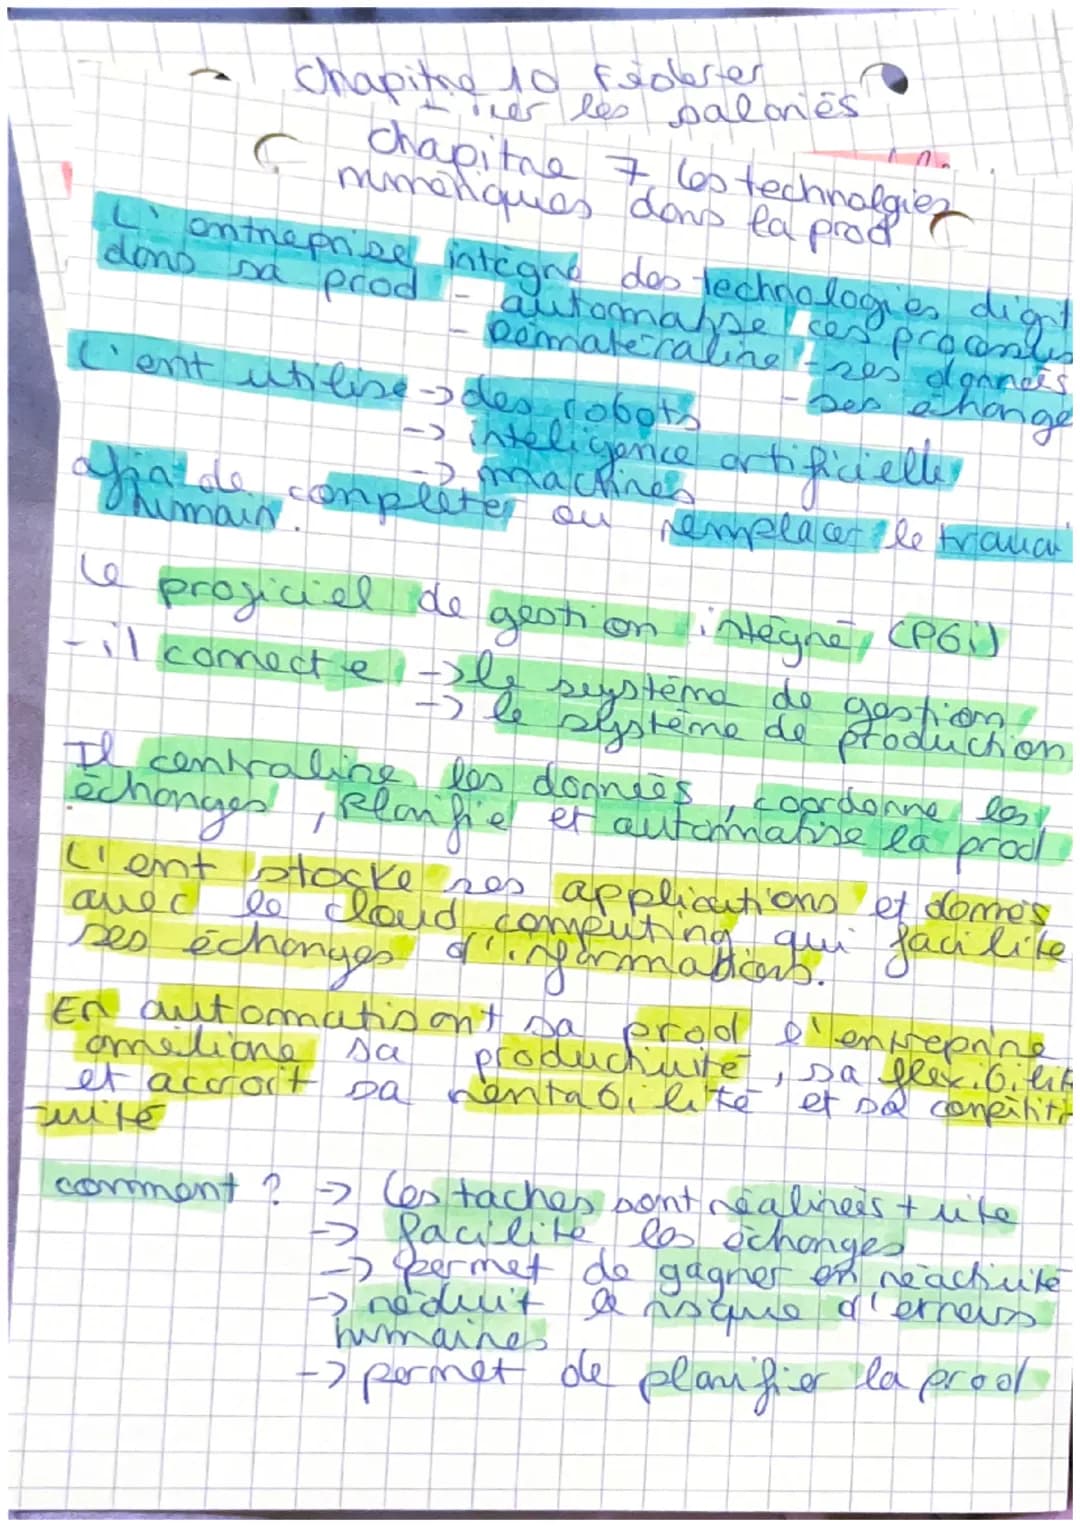 Chapitre 10 Fédérer
les salariés
Chapitre 7 les technolgies
numériques dans la prod
L'entreprise intègre des technologies digit
dans sa prod - automatise ces procées
- Dématéralise - ses données
- ses échange
L'ent utilise -> des robots
-> inteligence artificielle
-> machines
afin de compléter ou remplacer le travai
humain.
Le progiciel de gestion intégré (PGi)
- il connecte -> le système de gestion
-> le système de production
Il centralise les données, coordonne les
échanges, Planifie et automatise la prod
L'ent stocke ses applications et donnés
avec le cloud computing qui facilite
ses échanges d'informations.
En automatisant sa prod l'entreprise
améliore sa productivité, sa flexibilit
et accroit sa rentabilité et sa compétiti
-vité
comment ? -> Les taches sont réalisées + vite
-> facilite les échanges
-> permet de gagner en réactivité
-> réduit le risque d'erreurs
humaines
-> permet de planifier la prod